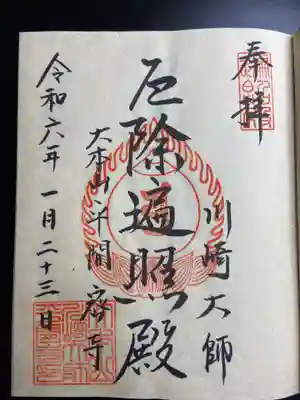 奉拝
川崎大師
厄除遍照殿
大本山平間寺
令和六年一月二十三日